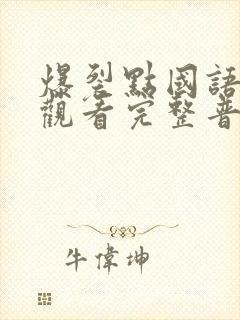 爆裂點國語
觀看完整普
牛偉坤